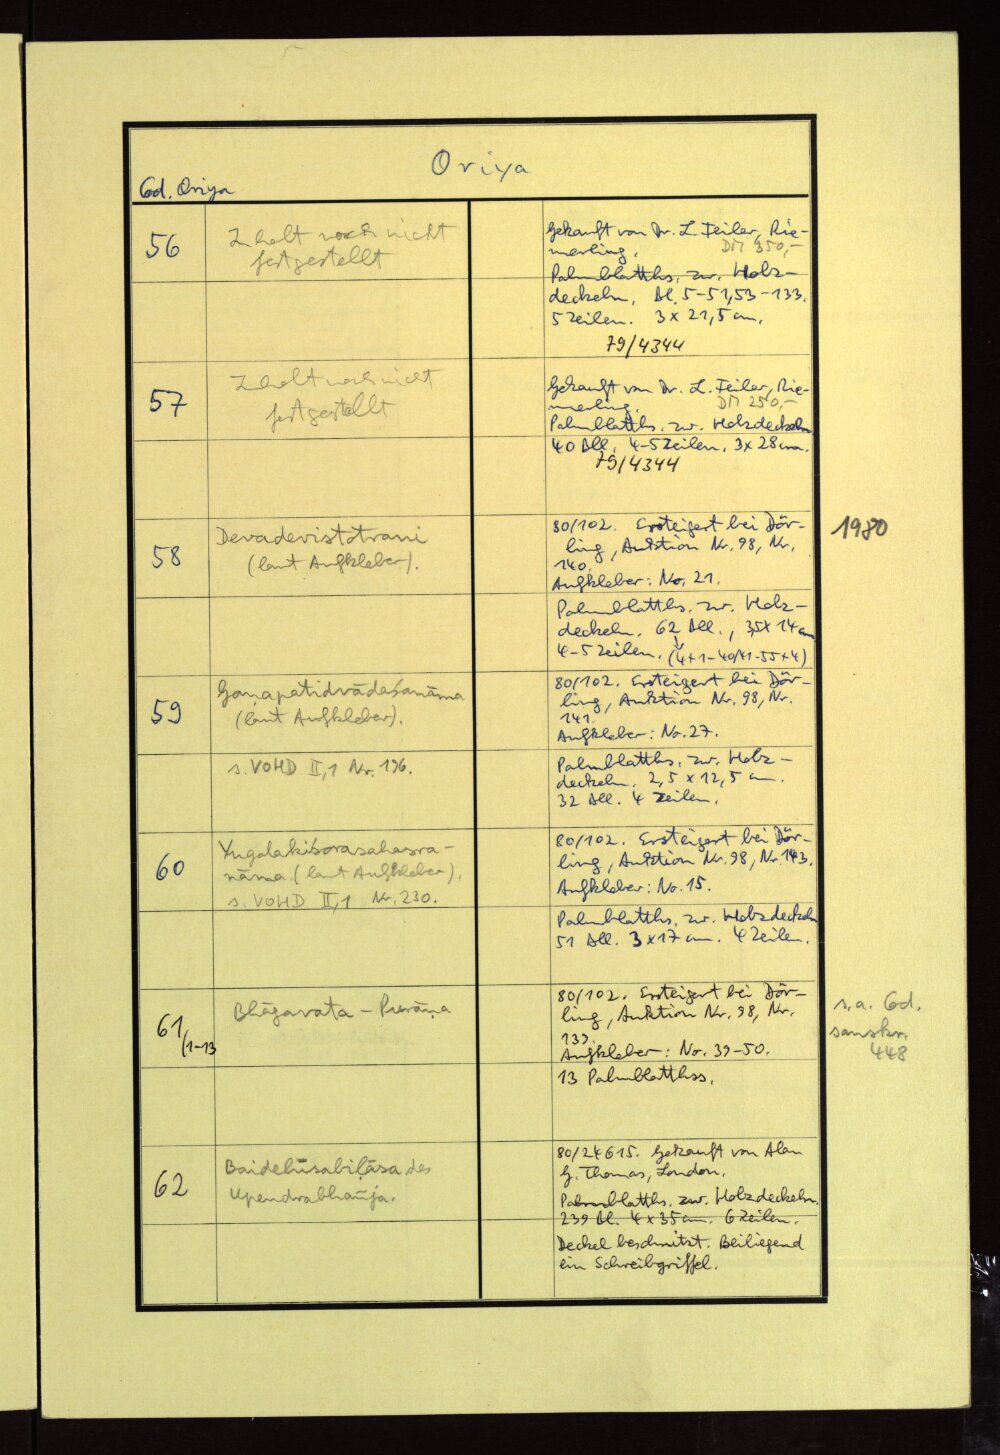 Oriya
Cod. Oriya
56
Inhalt noch nicht
festgestellt
Gekauft von Dr. L. Feiler, Rie-
merling. DM 350,-
Palmblatths. zw. Holz-
deckeln. Bl. 5-51, 53-133.
5 Zeilen. 3 x 21,5 cm.
79/4344
57
Inhalt noch nicht
festgestellt
Gekauft von Dr. L. Feiler, Rie-
merling. DM 250,-
Palmblatths. zw. Holzdeckeln
40 Bll. 4-5 Zeilen. 3x28 cm.
79/4344
58
Devadevistotrani
(laut Aufkleber).
80/102. Ersteigert bei Dör-
ling, Auktion Nr. 98, Nr.
140.
Aufkleber: No. 21.
Palmblatths. zw. Holz-
deckeln. 62 Bll., 3,5x14 cm
4-5 Zeilen. (4+1-40/41-55+4)
1980
59
Gaṇapatidvādaśanāma
(laut Aufkleber).
s. VOHD II,1 Nr. 196.
80/102. Ersteigert bei Dör-
ling, Auktion Nr. 98, Nr.
141.
Aufkleber: No. 27.
Palmblatths. zw. Holz-
deckeln. 2,5 x 12,5 cm.
32 Bll. 4 Zeilen.
60
Yugalakiśorasahasra-
nāma (laut Aufkleber).
s. VOHD II,1 Nr. 230.
80/102. Ersteigert bei Dör-
ling, Auktion Nr. 98, Nr. 143.
Aufkleber: No. 15.
Palmblatths. zw. Holzdeckeln
51 Bll. 3x17 cm. 4 Zeilen.
61/1-13
Bhāgavata-Purāṇa
80/102. Ersteigert bei Dör-
ling, Auktion Nr. 98, Nr.
139.
Aufkleber: No. 39-50.
13 Palmblatthss.
s. a. Cod.
sanskr.
448
62
Baidehīsabiḷāsa des
Upendrabhañja.
80/24615. Gekauft von Alan
G. Thomas, London.
Palmblatths. zw. Holzdeckeln.
239 Bl. 4 x 35 cm. 6 Zeilen.
Deckel beschnitzt. Beiliegend
ein Schreibgriffel.